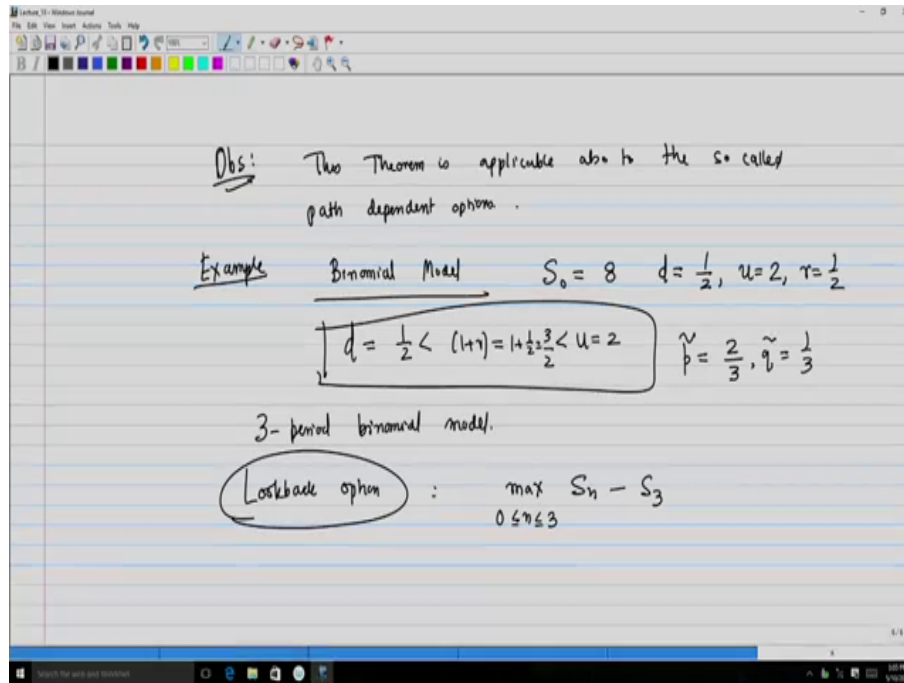 Lecture_10 - Windows Journal
File Edit View Insert Actions Tools Help
B I
Obs: This Theorem is applicable also to the so called
path dependent options .
Example Binomial Model S₀ = 8 d = 1/2, u = 2, r = 1/2
d = 1/2 < (1+r) = 1+1/2 = 3/2 < u = 2 p̃ = 2/3, q̃ = 1/3
3-period binomial model.
Lookback option : max Sₙ - S₃
0 ≤ n ≤ 3
Search the web and Windows